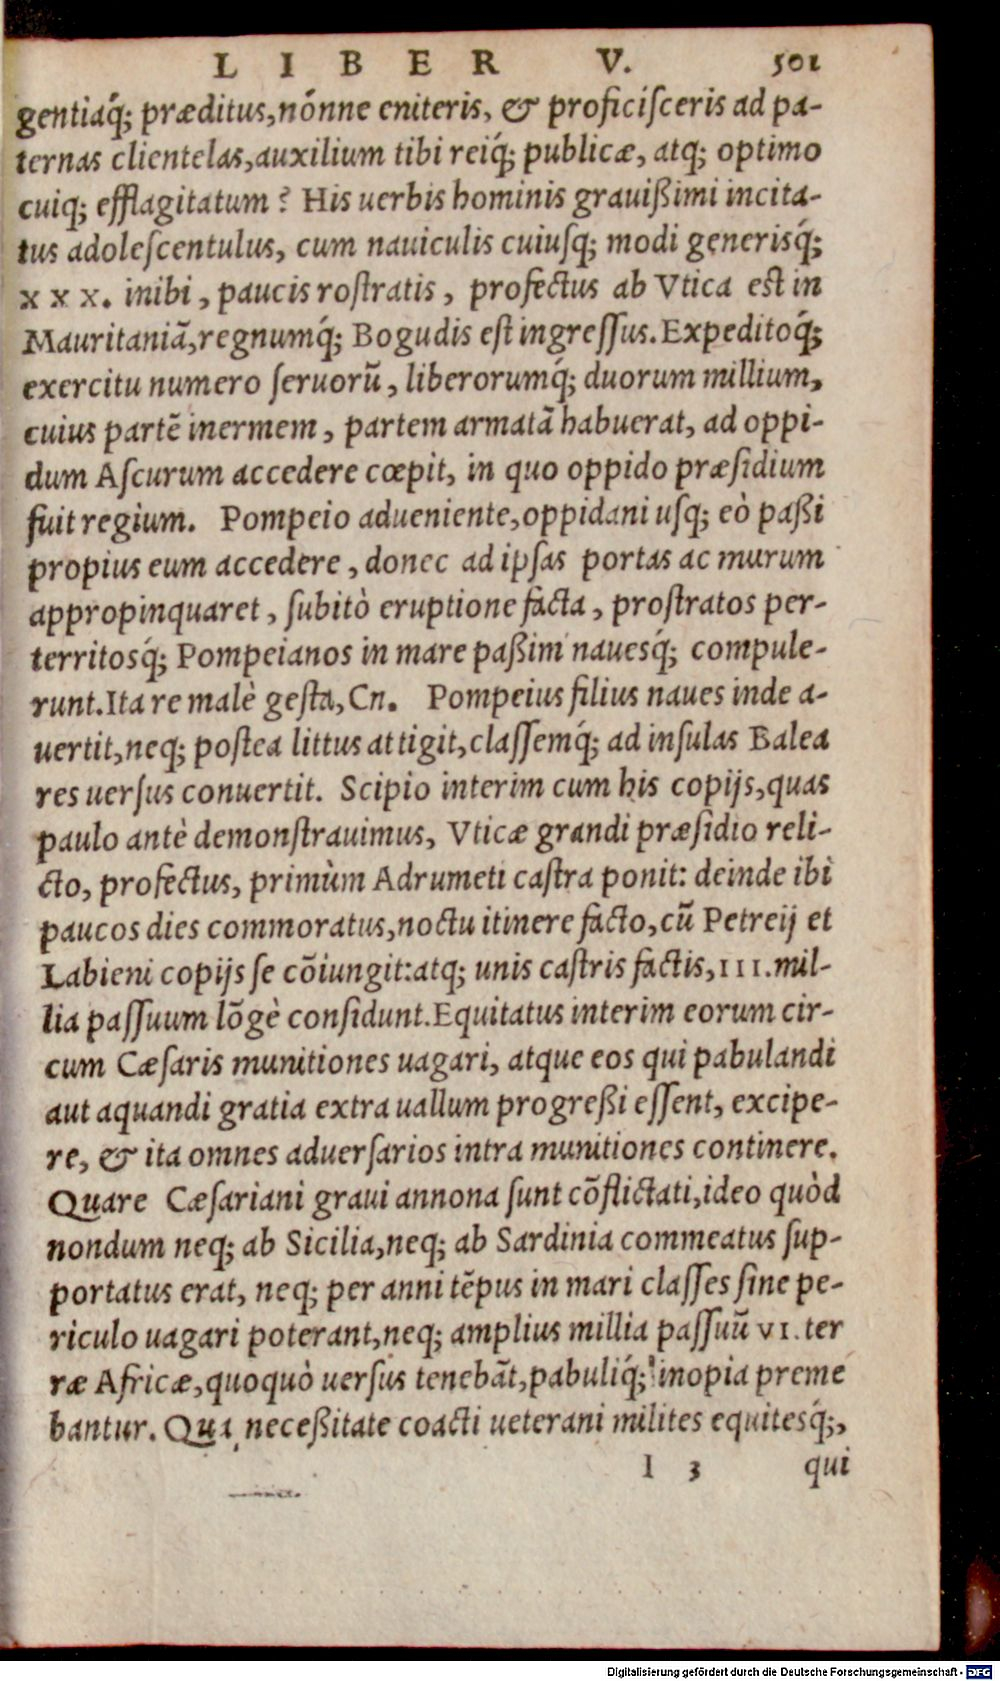 LIBER V. 501
gentiaq́; præditus, nónne eniteris, & proficiſceris ad pa-
ternas clientelas, auxilium tibi reiq́; publicæ, atq; optimo
cuiq; efflagitatum? His uerbis hominis grauißimi incita-
tus adoleſcentulus, cum nauiculis cuiuſq; modi generisq́;
xxx. inibi, paucis roſtratis, profectus ab Vtica est in
Mauritaniã, regnumq́; Bogudis eſt ingreſſus. Expeditoq́;
exercitu numero ſeruorũ, liberorumq́; duorum millium,
cuius partẽ inermem, partem armatã habuerat, ad oppi-
dum Aſcurum accedere cœpit, in quo oppido præſidium
fuit regium. Pompeio adueniente, oppidani uſq; eò paßi
propius eum accedere, donec ad ipſas portas ac murum
appropinquaret, ſubitò eruptione facta, proſtratos per-
territosq́; Pompeianos in mare paßim nauesq́; compule-
runt. Ita re malè geſta, Cn. Pompeius filius naues inde a-
uertit, neq; poſtea littus attigit, claſſemq́; ad inſulas Balea
res uerſus conuertit. Scipio interim cum his copijs, quas
paulo antè demonſtrauimus, Vticæ grandi præſidio reli-
cto, profectus, primùm Adrumeti caſtra ponit: deinde ibi
paucos dies commoratus, noctu itinere facto, cũ Petreij et
Labieni copijs ſe cõiungit: atq; unis caſtris factis, III. mil-
lia paſſuum lõgè conſidunt. Equitatus interim eorum cir-
cum Cæſaris munitiones uagari, atque eos qui pabulandi
aut aquandi gratia extra uallum progreßi eſſent, excipe-
re, & ita omnes aduerſarios intra munitiones continere.
Quare Cæſariani graui annona ſunt cõflictati, ideo quòd
nondum neq; ab Sicilia, neq; ab Sardinia commeatus ſup-
portatus erat, neq; per anni tẽpus in mari claſſes ſine pe-
riculo uagari poterant, neq; amplius millia paſſuũ VI. ter
ræ Africæ, quoquò uerſus tenebãt, pabuliq́; inopia preme
bantur. Qua neceßitate coacti ueterani milites equitesq́;,
I 3 qui
Digitalisierung gefördert durch die Deutsche Forschungsgemeinschaft - DFG